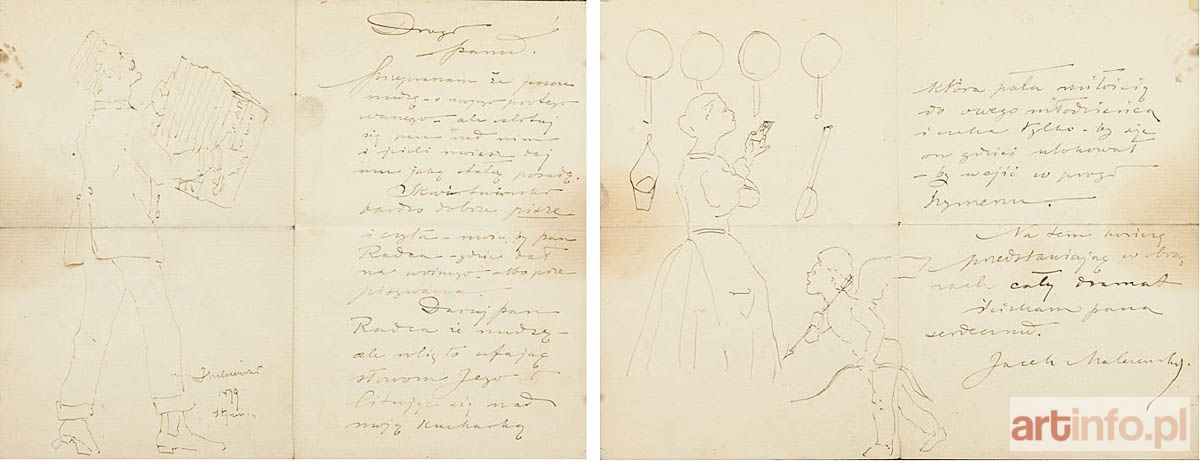 Drogi
panie!
Przepraszam że jeszcze
nudzę – o mojego protego
wanego – ale zlituj
się pan nad nim
i jeżeli możesz daj
mu jaką stałą posadę.
bardzo dobrze pisze
i czyta – może by pan
Radca – gdzie dał
na woźnego albo prze
pisywacza.
Daruj pan
Radca że nudzę –
ale robię to ufając
słowom Jego
litując się nad
moją kucharką
1919
która pała miłością
do owego młodzieńca
i czeka tylko – by się
on gdzieś ulokował
– by wejść w progi
hymenu.
Na tem kończę
przedstawiając w obra-
zach cały dramat
ściskam pana
serdecznie.
Jacek Malczewski.
artinfo.pl